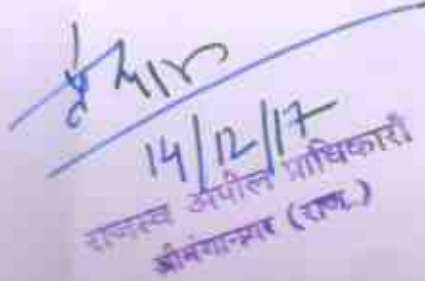 14/12/17
राजस्व अपील प्राधिकारी
श्रीगंगानगर (राज.)